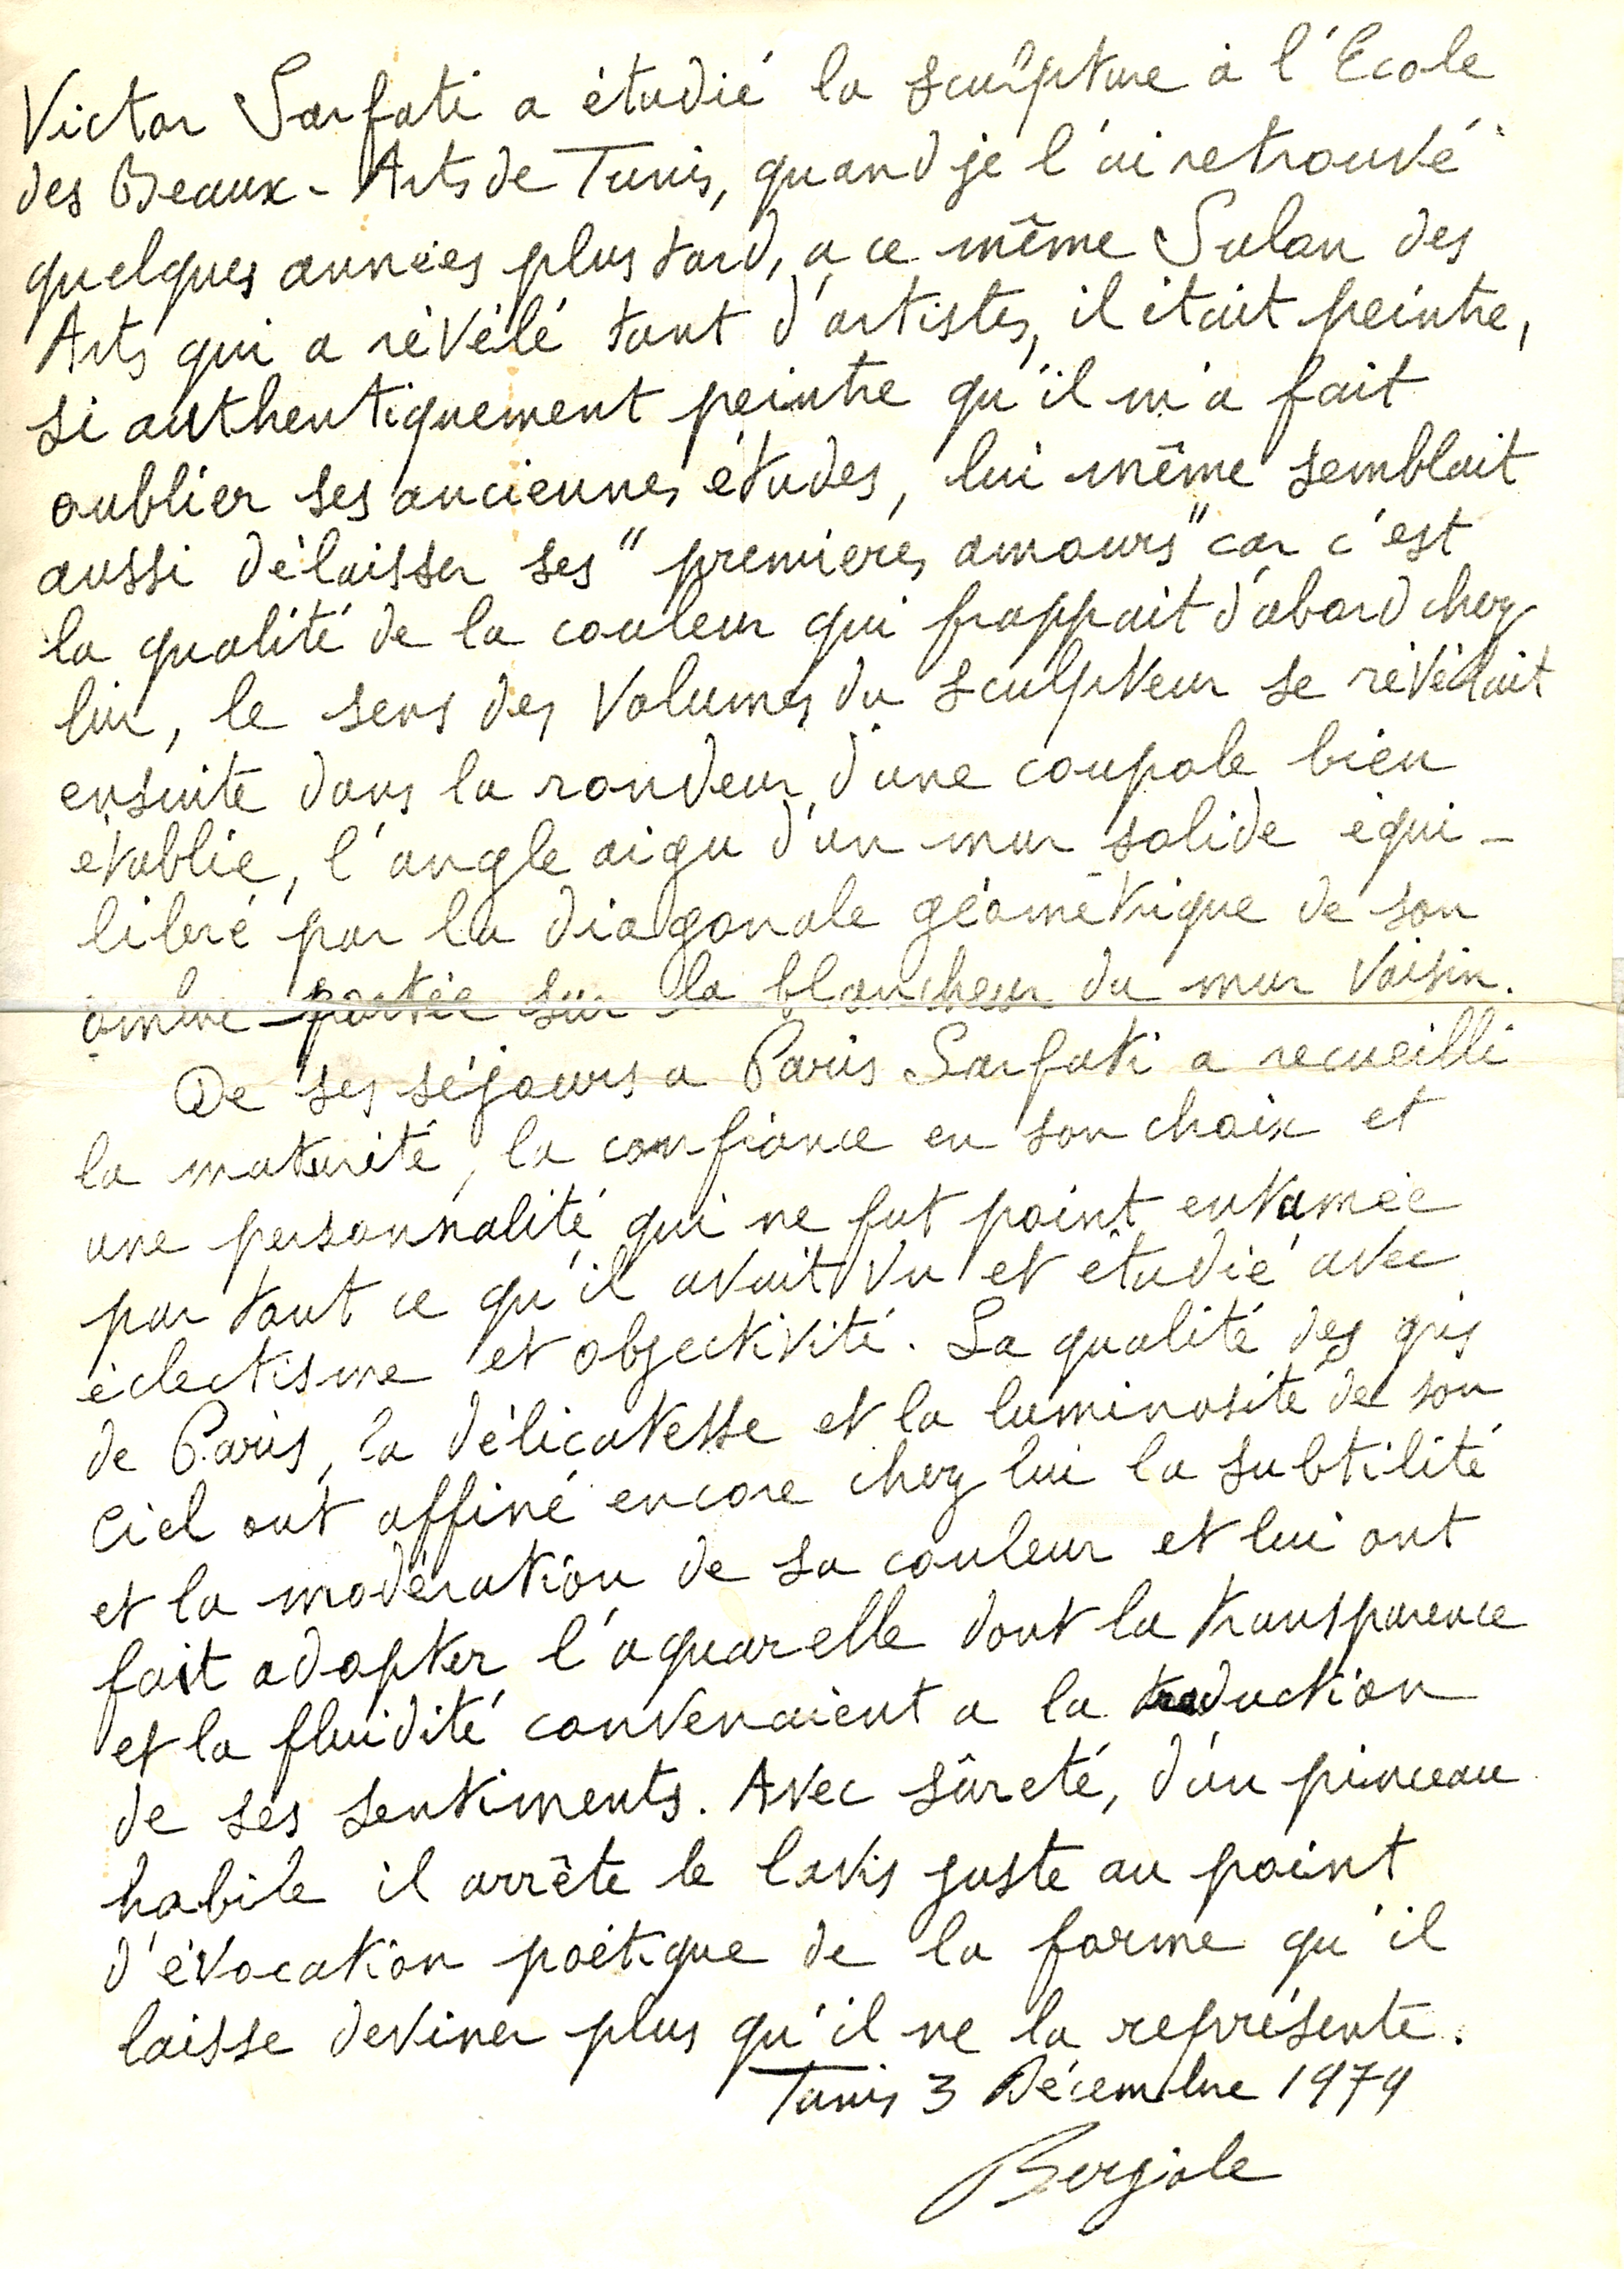 Victor Sarfati a étudié la sculpture à l'Ecole
des Beaux-Arts de Tunis, quand je l'ai retrouvé
quelques années plus tard, a ce même Salon des
Arts qui a révélé tant d'artistes, il était peintre,
si authentiquement peintre qu'il m'a fait
oublier ses anciennes études, lui même semblait
aussi délaisser ses "premières amours" car c'est
la qualité de la couleur qui frappait d'abord chez
lui, le sens des volumes du sculpteur se révélait
ensuite dans la rondeur d'une coupole bien
établie, l'angle aigu d'un mur solide équi-
libré par la diagonale géométrique de son
ombre portée sur la blancheur du mur voisin.
De ses séjours a Paris Sarfati a recueilli
la maturité, la confiance en son choix et
une personnalité qui ne fut point entamée
par tout ce qu'il avait vu et étudié avec
éclectisme et objectivité. La qualité des gris
de Paris, la délicatesse et la luminosité de son
ciel ont affiné encore chez lui la subtilité
et la modération de sa couleur et lui ont
fait adopter l'aquarelle dont la transparence
et la fluidité convenaient a la traduction
de ses sentiments. Avec sûreté, d'un pinceau
habile il arrête le lavis juste au point
d'évocation poétique de la forme qu'il
laisse deviner plus qu'il ne la représente.
Tunis 3 Décembre 1979